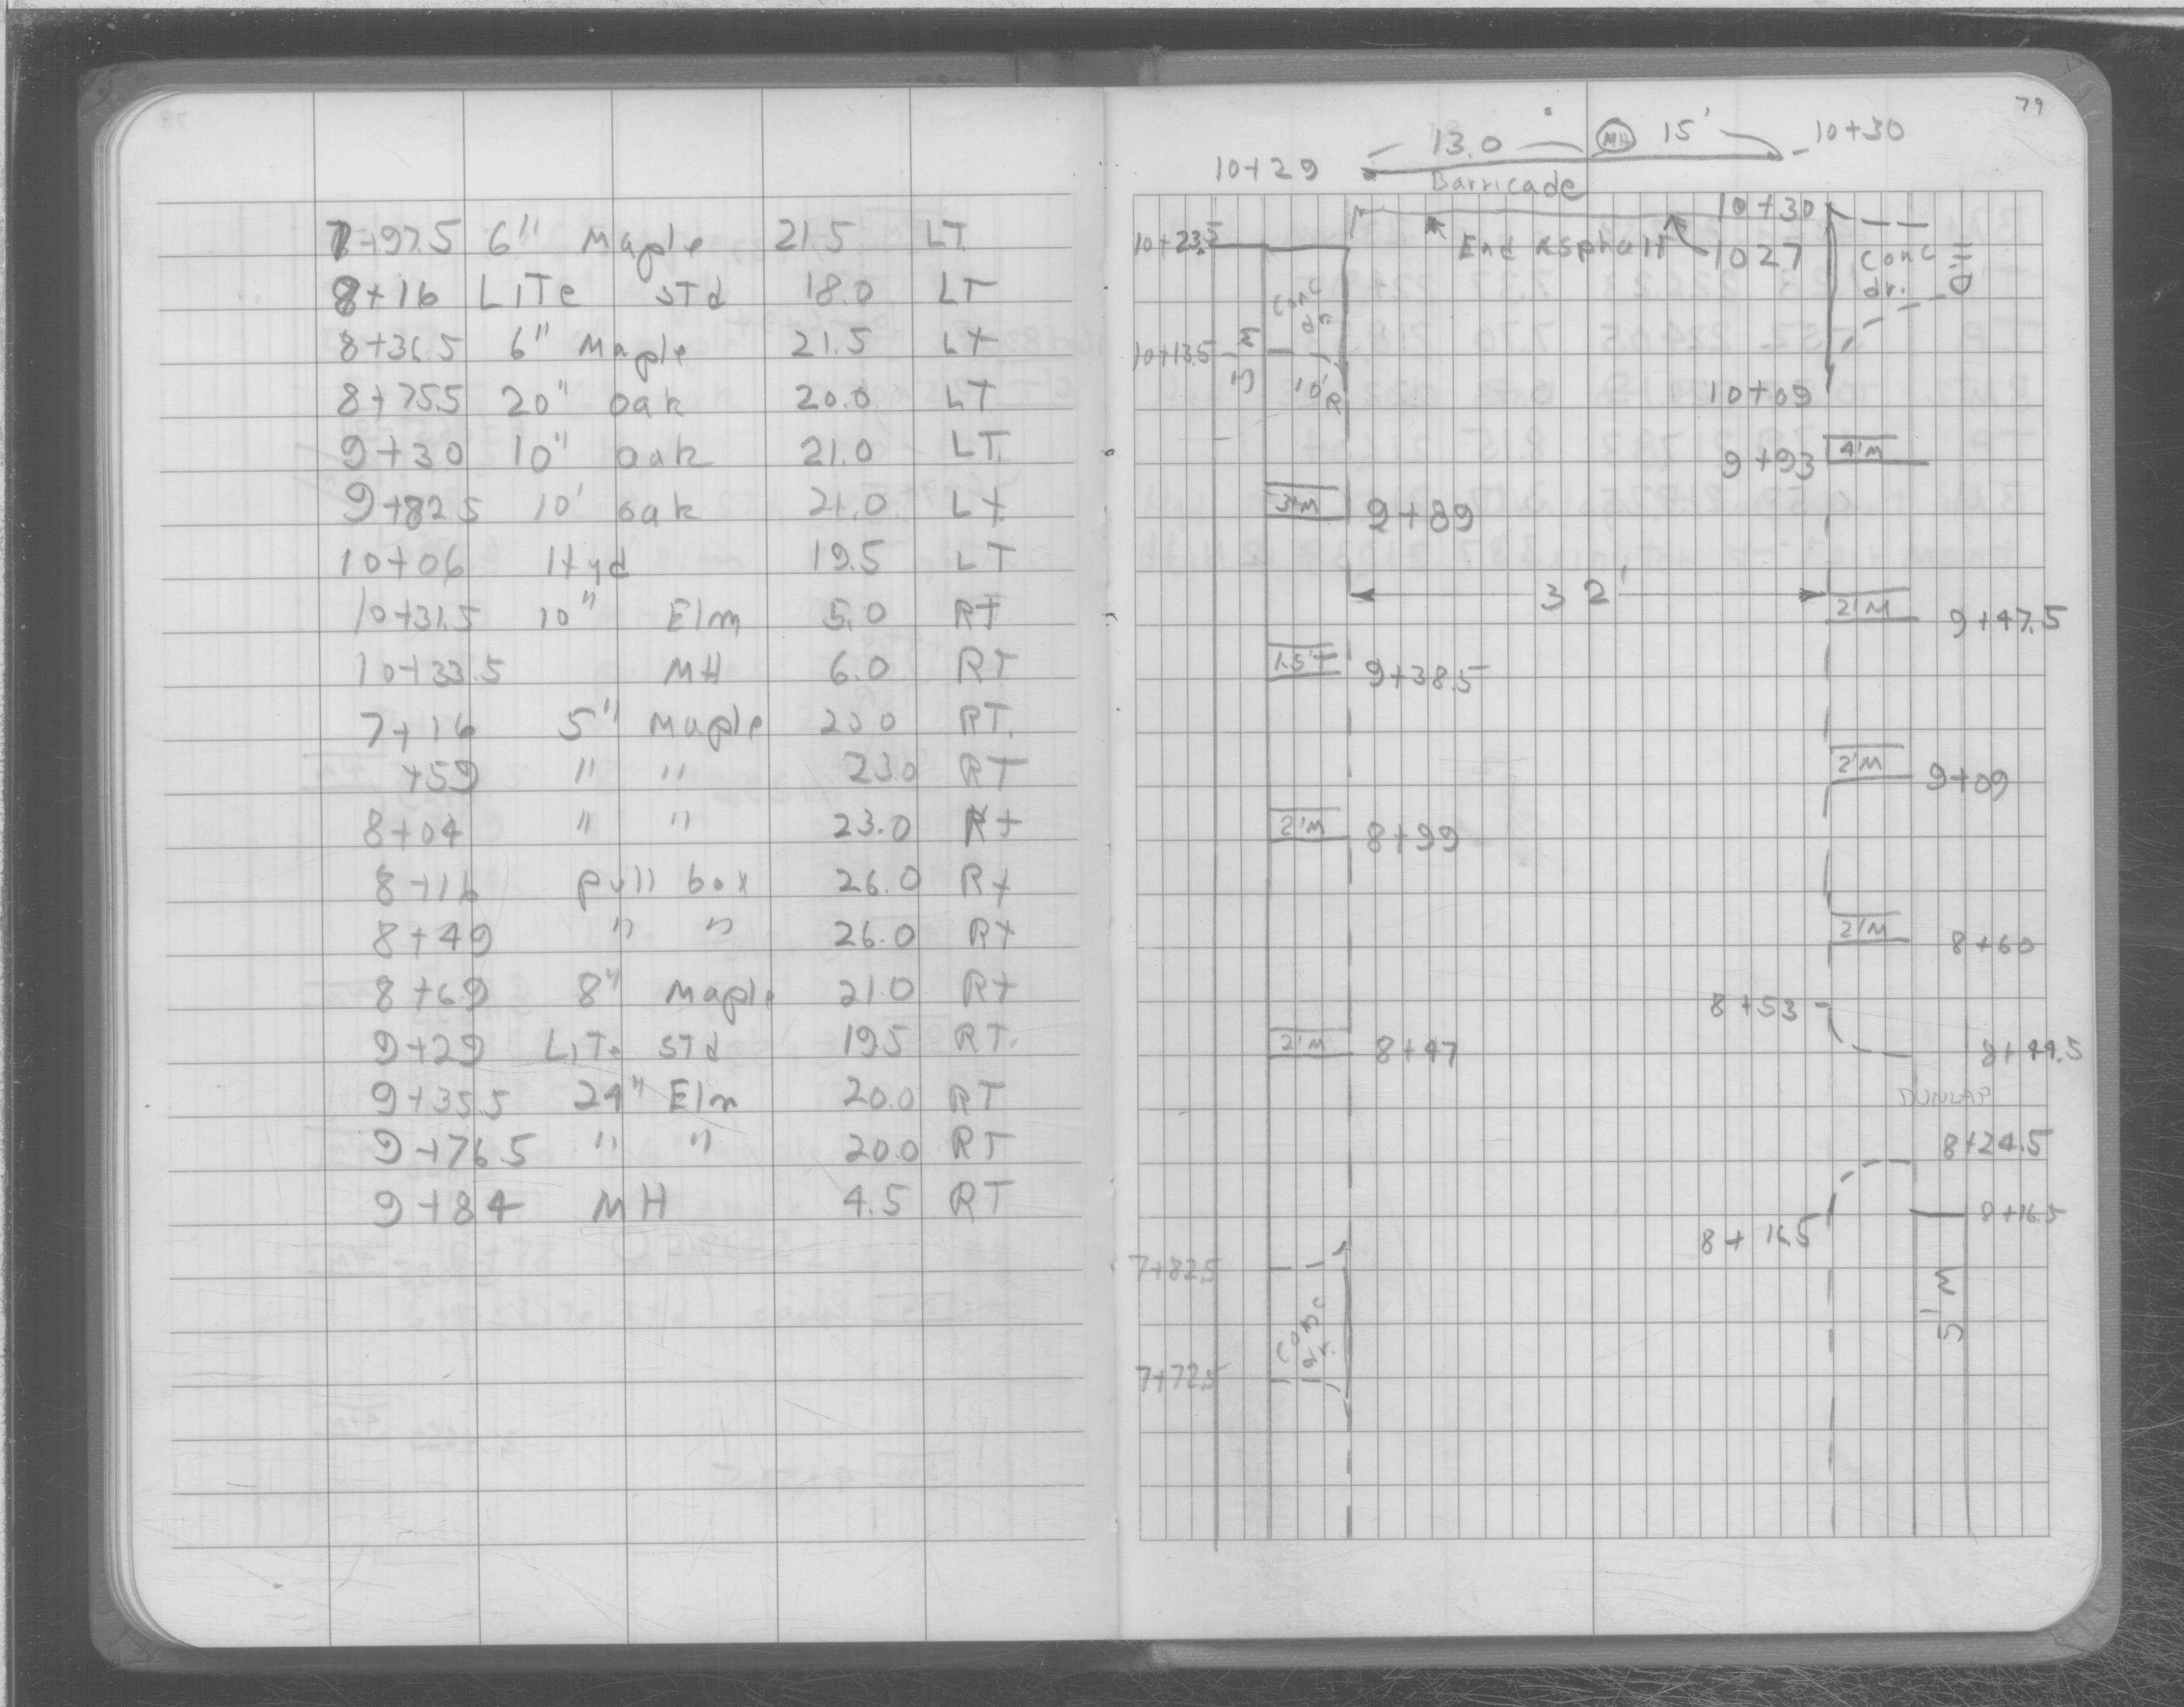 7+97.5 6" Maple 21.5 LT
8+16 LiTe STd 18.0 LT
8+36.5 6" Maple 21.5 Lt
8+75.5 20" oak 20.0 LT
9+30 10" oak 21.0 LT.
9+82.5 10' oak 21.0 Lt
10+06 Hyd 19.5 LT
10+31.5 10" Elm 5.0 RT
10+33.5 MH 6.0 RT
7+16 5" Maple 23.0 RT.
+59 " " 23.0 RT
8+04 " " 23.0 Rt
8+16 pull box 26.0 Rt
8+49 " " 26.0 Rt
8+69 8" Maple 21.0 Rt
9+29 LiTe STd 19.5 RT.
9+35.5 24" Elm 20.0 RT
9+76.5 " " 20.0 RT
9+84 MH 4.5 RT
79
13.0 MH 15' 10+30
10+29
Barricade
10+30
10+23.5 End Asphalt 1027
Conc dr.
Conc dr.
10+13.5
5'M
10'R
10+09
9+93 4'M
3'M 9+89
32'
2'M 9+47.5
1.5'T 9+38.5
2'M 9+09
2'M 8+99
2'M 8+60
8+53
2'M 8+47
8+44.5
DUNLAP
8+24.5
8+16.5
8+16.5
7+82.5
5'M
Conc dr.
7+72.5